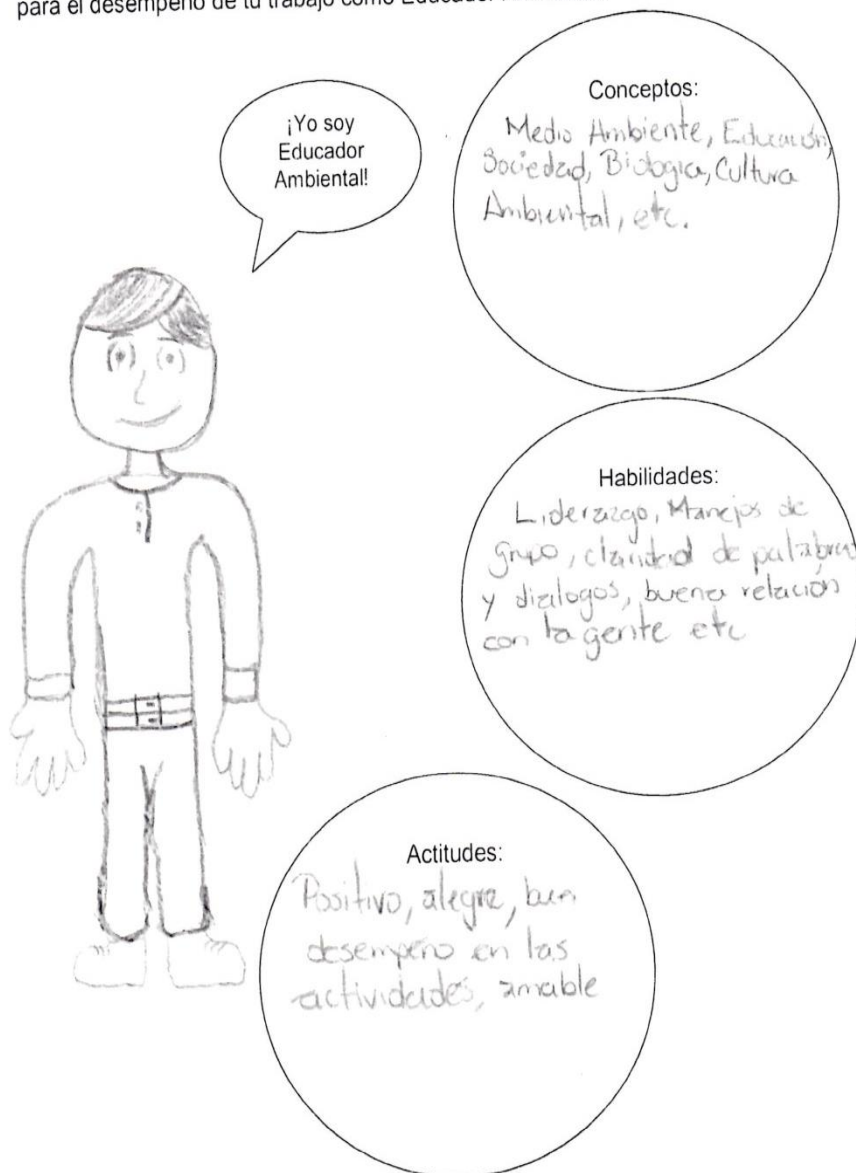 para el desempeño de tu trabajo como Educador
¡Yo soy
Educador
Ambiental!
Conceptos:
Medio Ambiente, Educación,
Sociedad, Biologica, Cultura
Ambiental, etc.
Habilidades:
Liderazgo, Manejos de
grupo, claridad de palabras
y dialogos, buena relación
con la gente etc
Actitudes:
Positivo, alegre, buen
desempeño en las
actividades, amable